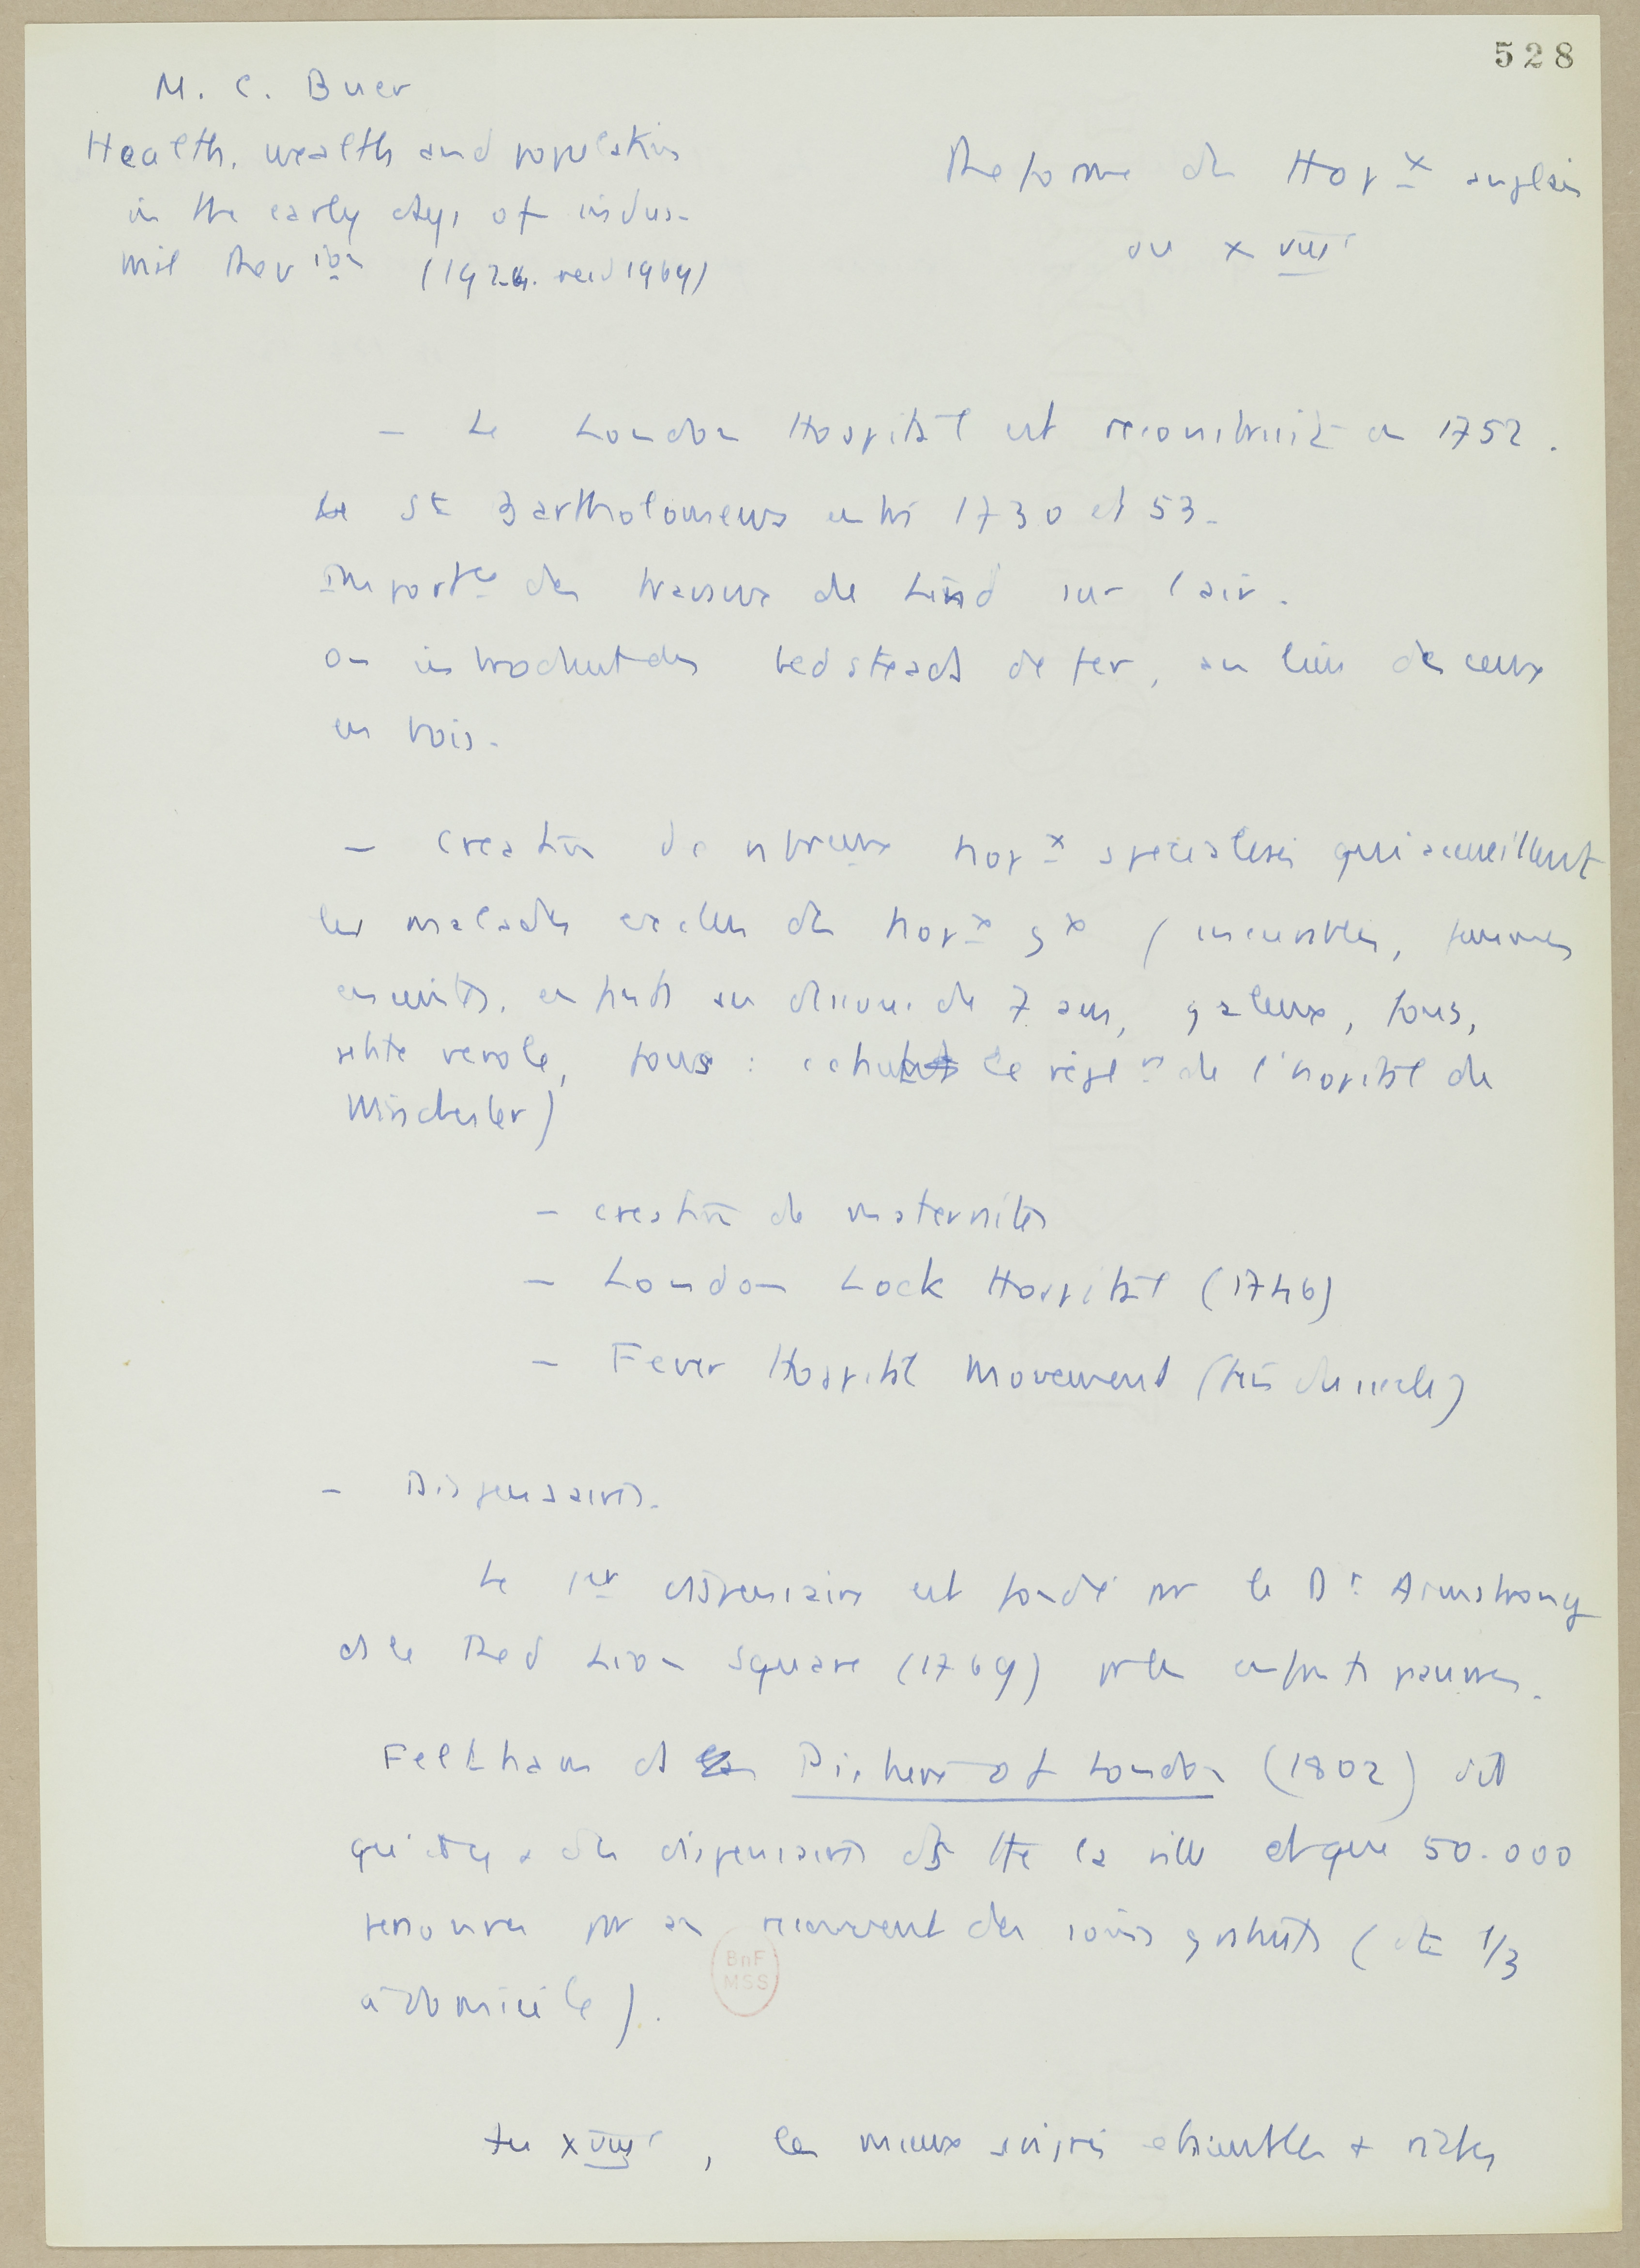 528
M. C. Buer
Health, wealth and population
in the early days of indus-
trial Rev ion (1926. reed 1969)
Reforme des Hopx anglais
au XVIIIe
- Le London Hospital est reconstruit en 1752.
Le St Bartholomews entre 1730 et 53.
Importce des travaux de Lind sur l'air.
On introduit des bedsteads de fer, au lieu de ceux
en bois.
- Creation de nbreux hopx specialisés qui accueillent
les malades exclus des hopx gx (incurables, femmes
enceintes, enfants au dessous de 7 ans, galeux, fous,
petite verole, fous : c'etait le reglt de l'hopital de
Winchester)
- creation de maternités
- London Lock Hospital (1746)
- Fever Hospital Movement (fin du siecle)
- Dispensaires.
Le 1er dispensaire est fondé par le Dr Armstrong
ds le Red Lion Square (1769) pr les enfants pauvres.
Feltham ds Picture of London (1802) dit
qu'il y a des dispensaires ds tte la ville et que 50.000
personnes par an reçoivent des soins gratuits (dt 1/3
à domicile).
BnF
MSS
Au XVIIIe, les mieux soignés etaient les + riches